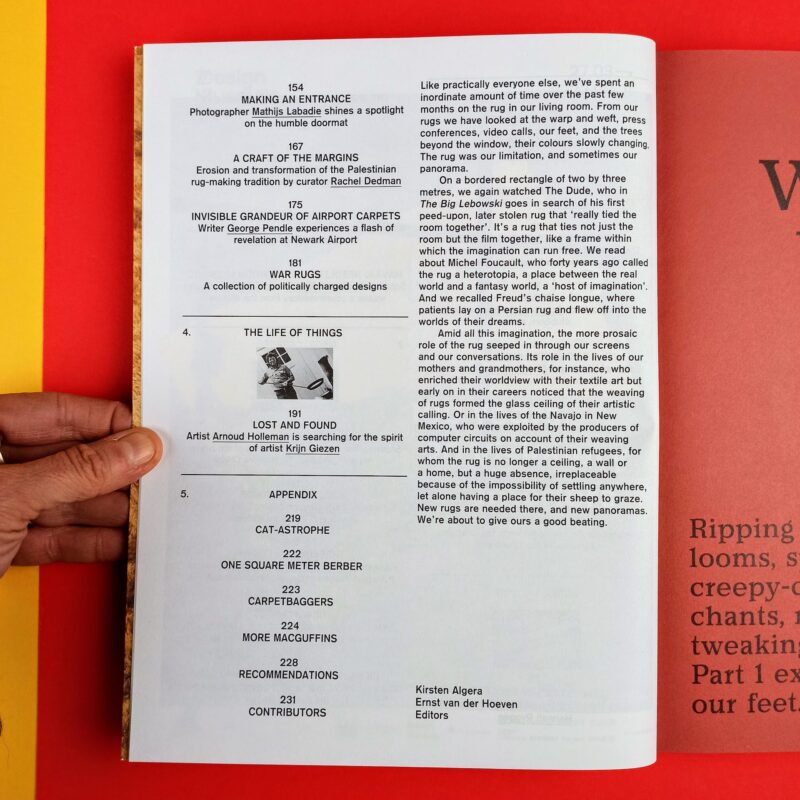 154
MAKING AN ENTRANCE
Photographer Mathijs Labadie shines a spotlight
on the humble doormat
167
A CRAFT OF THE MARGINS
Erosion and transformation of the Palestinian
rug-making tradition by curator Rachel Dedman
175
INVISIBLE GRANDEUR OF AIRPORT CARPETS
Writer George Pendle experiences a flash of
revelation at Newark Airport
181
WAR RUGS
A collection of politically charged designs
4. THE LIFE OF THINGS
191
LOST AND FOUND
Artist Arnoud Holleman is searching for the spirit
of artist Krijn Giezen
5. APPENDIX
219
CAT-ASTROPHE
222
ONE SQUARE METER BERBER
223
CARPETBAGGERS
224
MORE MACGUFFINS
228
RECOMMENDATIONS
231
CONTRIBUTORS
Like practically everyone else, we’ve spent an
inordinate amount of time over the past few
months on the rug in our living room. From our
rugs we have looked at the warp and weft, press
conferences, video calls, our feet, and the trees
beyond the window, their colours slowly changing.
The rug was our limitation, and sometimes our
panorama.
On a bordered rectangle of two by three
metres, we again watched The Dude, who in
The Big Lebowski goes in search of his first
peed-upon, later stolen rug that ‘really tied the
room together’. It’s a rug that ties not just the
room but the film together, like a frame within
which the imagination can run free. We read
about Michel Foucault, who forty years ago called
the rug a heterotopia, a place between the real
world and a fantasy world, a ‘host of imagination’.
And we recalled Freud’s chaise longue, where
patients lay on a Persian rug and flew off into the
worlds of their dreams.
Amid all this imagination, the more prosaic
role of the rug seeped in through our screens
and our conversations. Its role in the lives of our
mothers and grandmothers, for instance, who
enriched their worldview with their textile art but
early on in their careers noticed that the weaving
of rugs formed the glass ceiling of their artistic
calling. Or in the lives of the Navajo in New
Mexico, who were exploited by the producers of
computer circuits on account of their weaving
arts. And in the lives of Palestinian refugees, for
whom the rug is no longer a ceiling, a wall or
a home, but a huge absence, irreplaceable
because of the impossibility of settling anywhere,
let alone having a place for their sheep to graze.
New rugs are needed there, and new panoramas.
We’re about to give ours a good beating.
Kirsten Algera
Ernst van der Hoeven
Editors
Ripping
looms, s
creepy-c
chants,
tweaking
Part 1 ex
our feet.